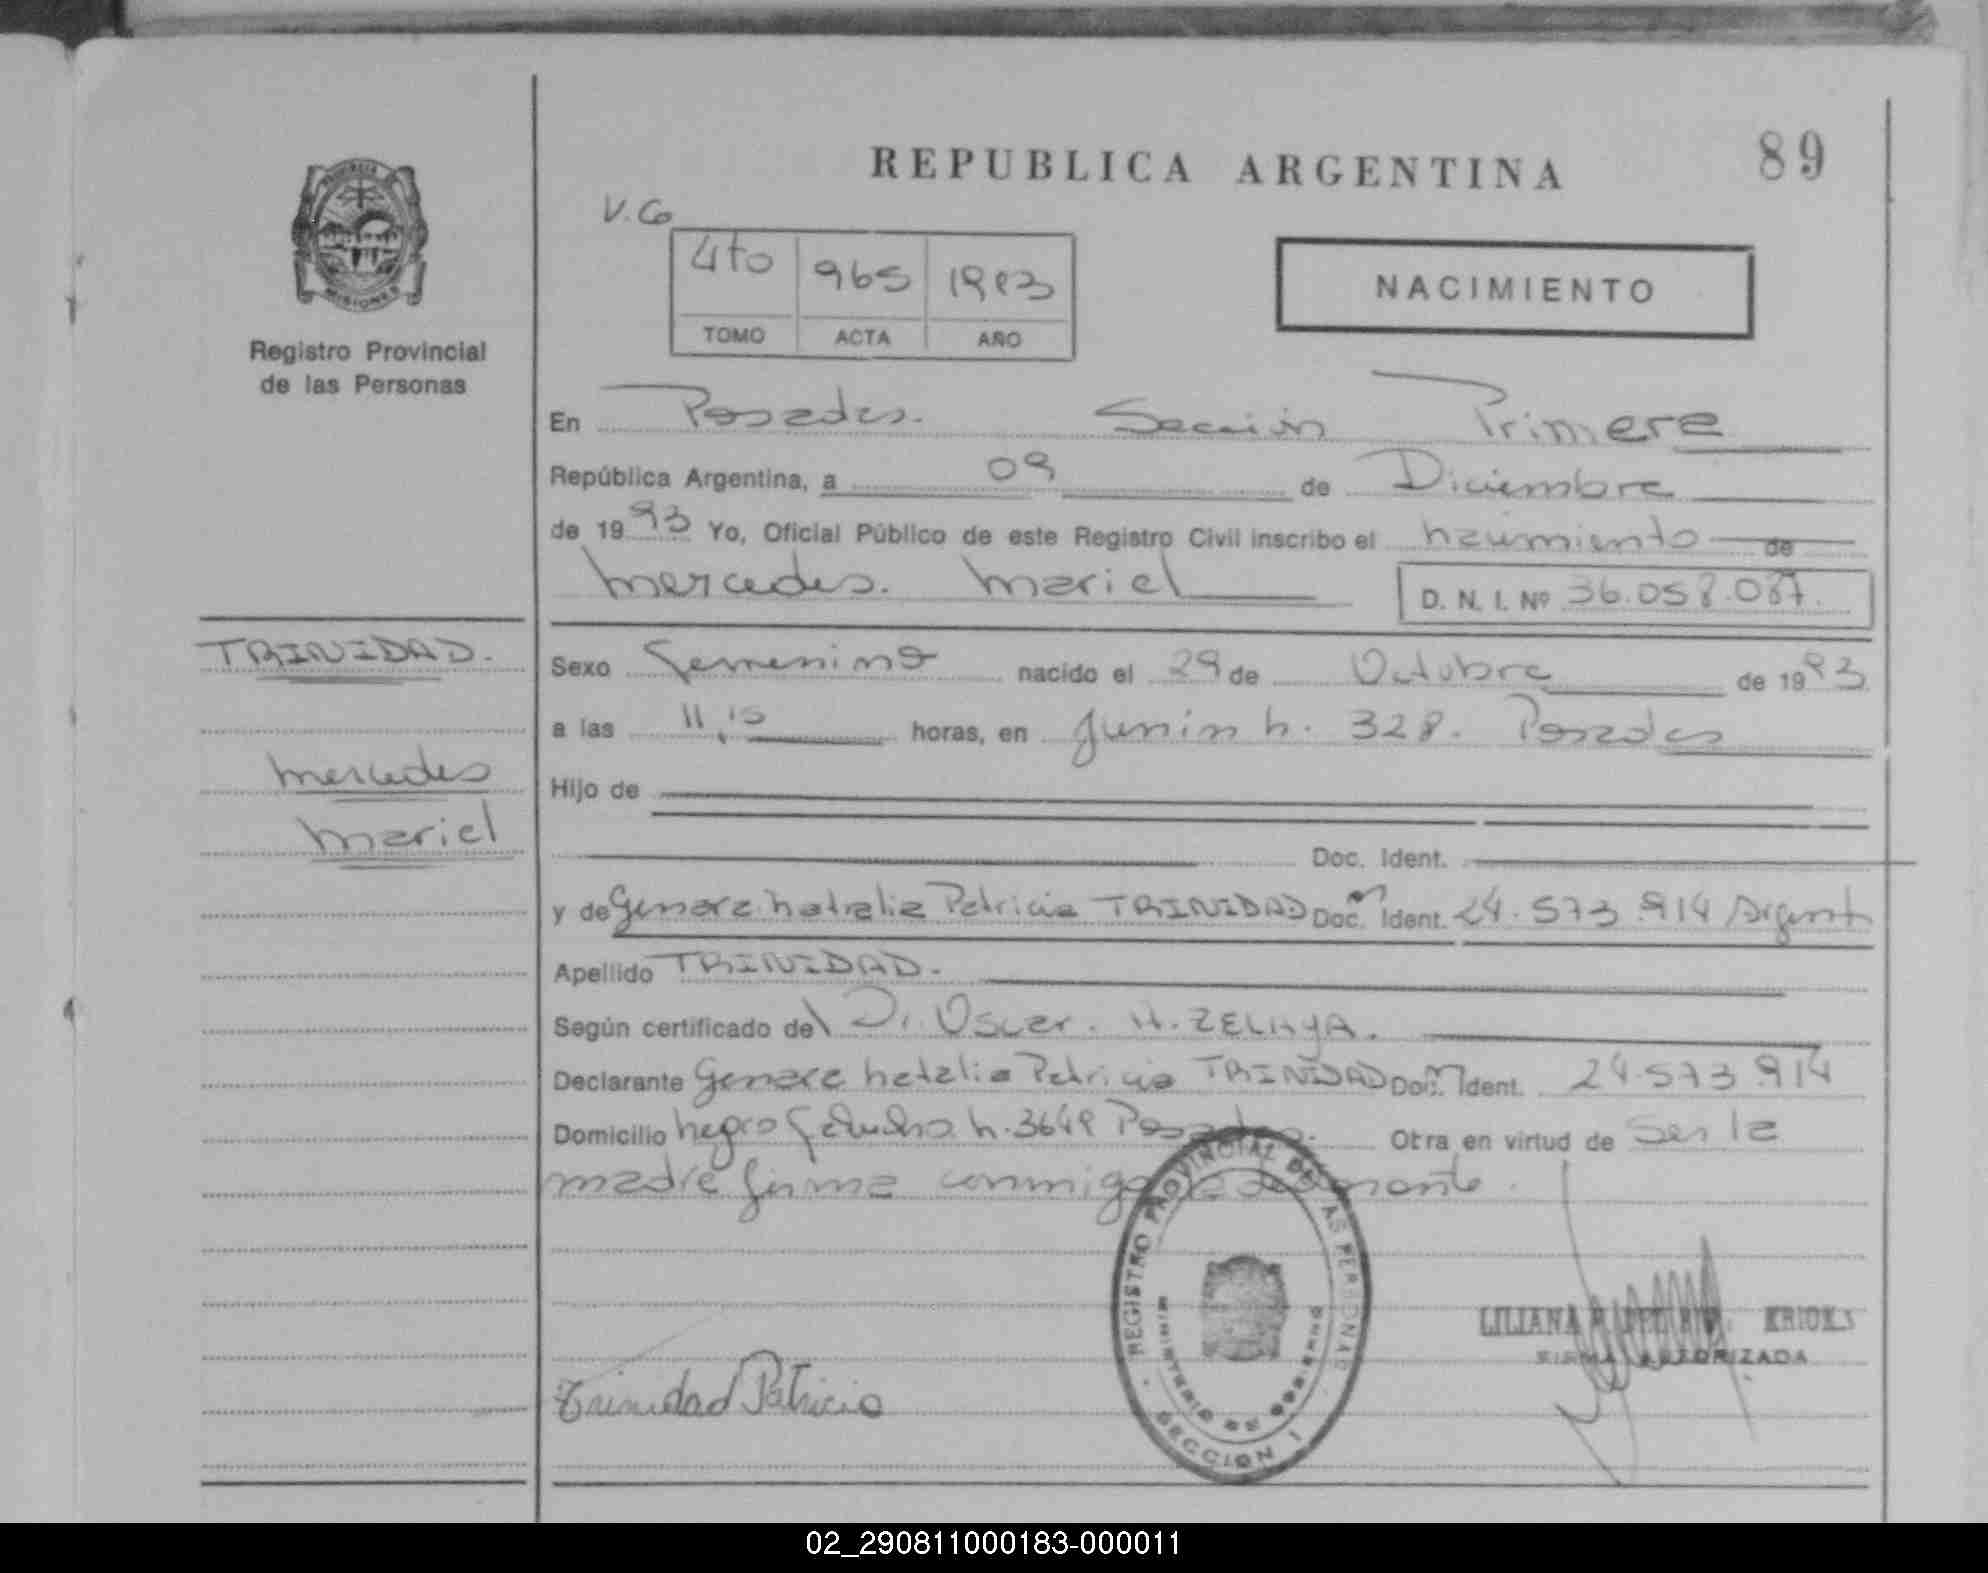 REPUBLICA ARGENTINA
89
PROVINCIA DE MISIONES
Registro Provincial
de las Personas
V. Co
4to 965 1993
TOMO ACTA AÑO
NACIMIENTO
En Posadas. Sección Primera
República Argentina, a 09 de Diciembre
de 1993 Yo, Oficial Público de este Registro Civil inscribo el nacimiento de
Mercedes. Mariel D. N. I. Nº 36.058.087.
TRINIDAD.
Mercedes
Mariel
Sexo Femenino nacido el 29 de Octubre de 1993
a las 11,15 horas, en Junín N. 328. Posadas
Hijo de
Doc. Ident.
y de Genara Natalia Patricia TRINIDAD Doc. Ident. 24.573.914 Argent
Apellido TRINIDAD.
Según certificado del Dr. Oscar. H. ZELAYA.
Declarante Genara Natalia Patricia TRINIDAD Doc. Ident. 24.573.914
Domicilio Negro Gaucho N. 3649 Posadas. Otra en virtud de Ser la
madre firma conmigo la
REGISTRO PROVINCIAL DE LAS PERSONAS
MINISTERIO DE GOBIERNO
SECCION 1
LILIANA
FIRMA AUTORIZADA
Trinidad Patricia
02_290811000183-000011